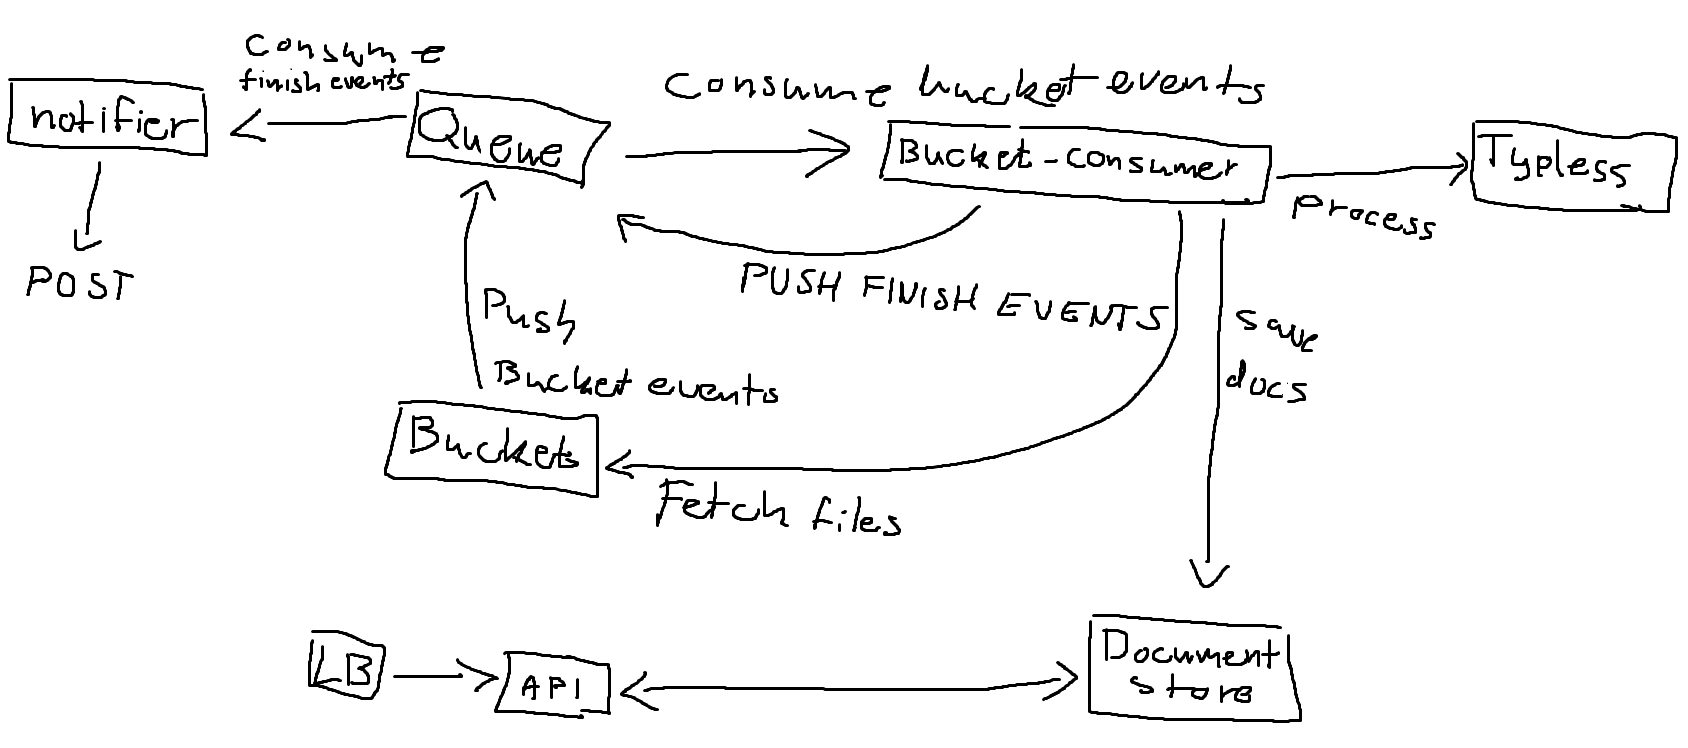 Consume
finish events
notifier
Queue
Consume bucket events
Bucket-consumer
Typless
process
POST
PUSH FINISH EVENTS
Push
Bucket events
save
docs
Buckets
Fetch files
LB
API
Document
store